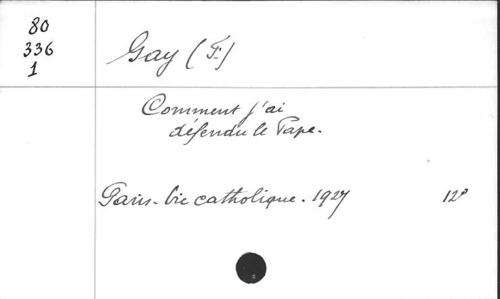 80
336
1
Gay (F.)
Comment j'ai
défendu le Pape.
Paris. Vie catholique. 1927 12°